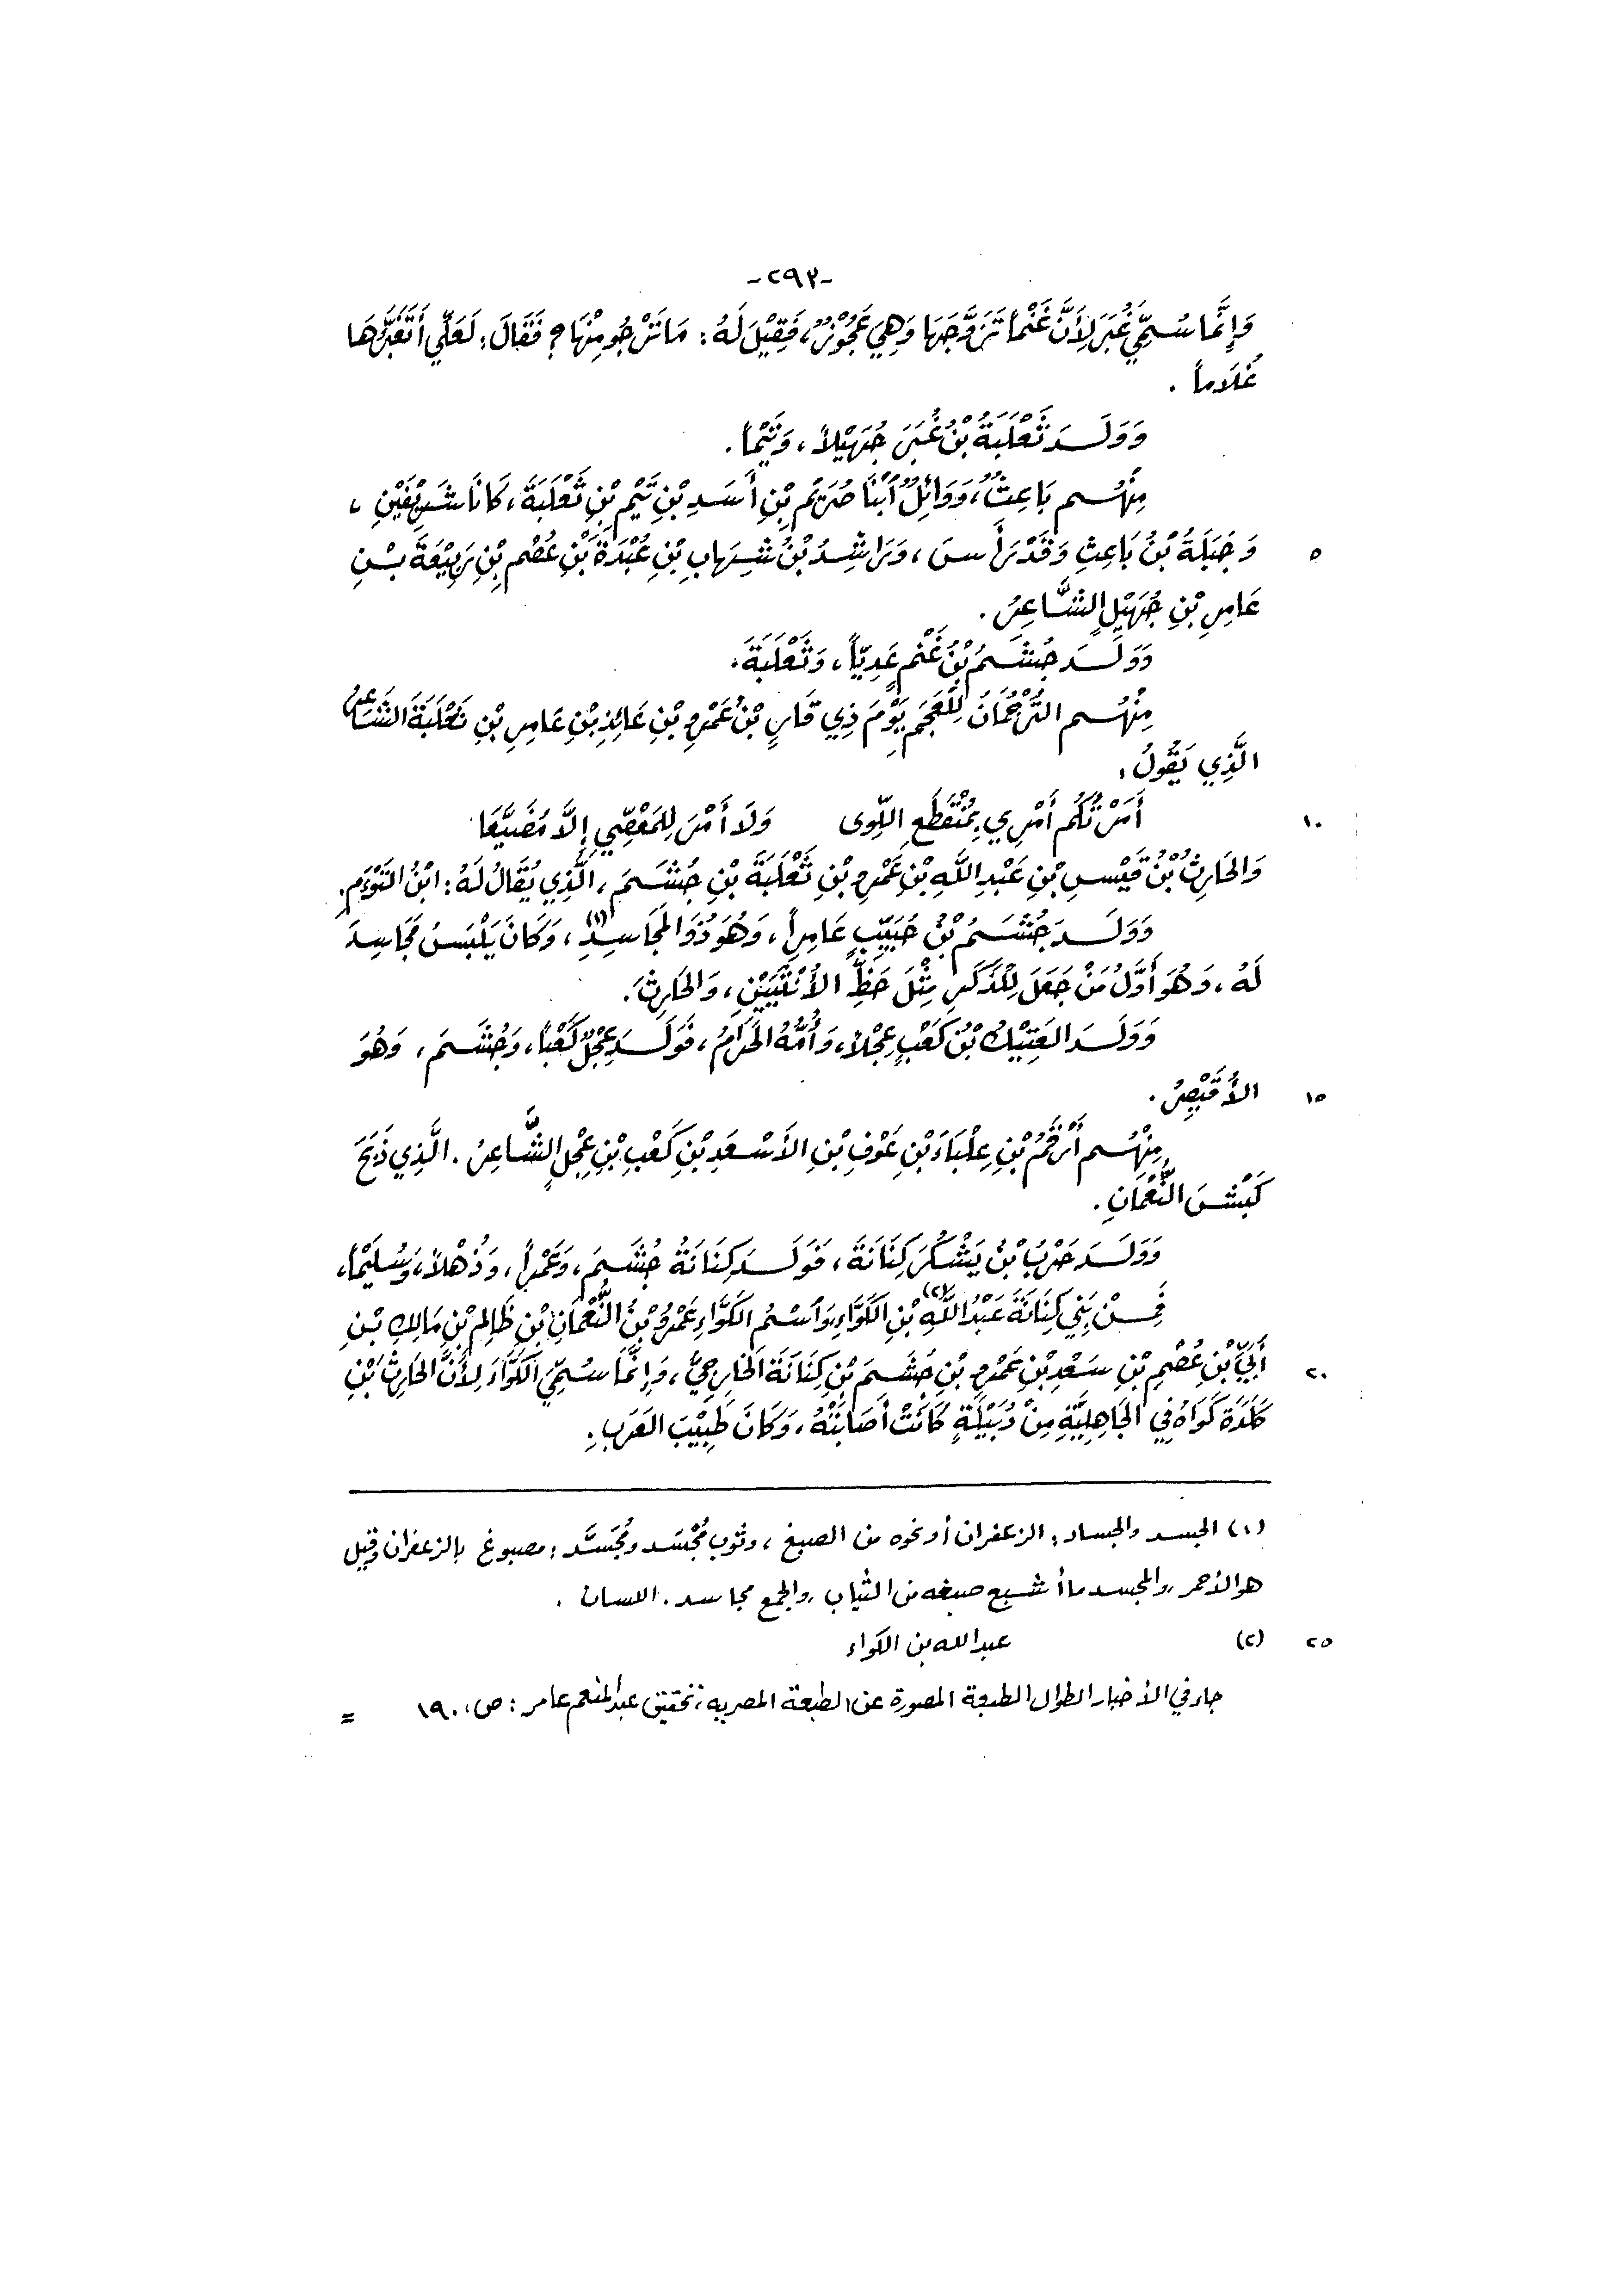 -٢٩٣-
وَإِنَّمَا سُمِّيَ غُبَرَ لِأَنَّ غَنْماً تَزَوَّجَهَا وَهِيَ عَجُوْزٌ، فَقِيْلَ لَهُ: مَا تَرْجُو مِنْهَا؟ فَقَالَ: لَعَلِّي أَتَغَبَّرُهَا
غُلَاماً .
وَوَلَــدَ ثَعْلَبَةُ بْنُ غُبَرَ جُهَيْلاً، وَتَيْماً.
مِنْهُـم بَاعِثٌ، وَوَائِلٌ ابْنَا صُرَيْمِ بْنِ أَسَدِ بْنِ تَيْمِ بْنِ ثَعْلَبَةَ، كَانَا شَرِيْفَيْنِ،
٥ وَجَبَلَةُ بْنُ بَاعِثِ وَقَدْ رَأَسَ، وَرَاشِدُ بْنُ شِهَابِ بْنِ عُبْدَةَ بْنِ عُصْمِ بْنِ رَبِيْعَةَ بْـنِ
عَامِرِ بْنِ جُهَيْلٍ الشَّاعِرُ.
وَوَلَــدَ جُشَـمُ بْنُ غَنْمٍ عَدِيّاً، وَثَعْلَبَةَ.
مِنْهُـم التَّرْجُمَانُ لِلْعَجَمِ يَوْمَ ذِي قَارٍ بْنُ عَمْرِو بْنِ عَائِذِ بْنِ عَامِرِ بْنِ ثَعْلَبَةَ الشَّاعِرُ
الَّذِي يَقُولُ:
١٠ أَمَرْتُكُم أَمْرِي بِمُنْقَطَعِ اللِّوَى وَلَا أَمْرَ لِلمَعْصِيِّ إِلَّا مُضَيَّعَا
وَالحَارِثُ بْنُ قَيْسِ بْنِ عَبْدِ اللَّهِ بْنِ عَمْرِو بْنِ ثَعْلَبَةَ بْنِ جُشَـمَ، الَّذِي يُقَالُ لَهُ: ابْنُ التَّوْءَمِ.
وَوَلَــدَ جُشَـمُ بْنُ حُبَيِّبٍ عَامِراً، وَهُوَ ذُو المَجَاسِدِ(١)، وَكَانَ يَلْبَسُ مَجَاسِدَ
لَهُ، وَهُوَ أَوَّلُ مَنْ جَعَلَ لِلذَّكَرِ مِثْلَ حَظِّ الأُنْثَيَيْنِ، وَالحَارِثَ.
وَوَلَــدَ العَتِيْكُ بْنُ كَعْبٍ عِجْلاً، وَأُمُّهُ الحَرَامُ، فَوَلَــدَ عِجْلٌ كَعْباً، وَجُشَـمَ، وَهُوَ
١٥ الأُقَيْصِرُ.
مِنْهُـم أَرْقَمُ بْنِ عِلْبَاءَ بْنِ عَوْفِ بْنِ الأَسْعَدِ بْنِ كَعْبِ بْنِ عِجْلٍ الشَّاعِرُ. الَّذِي ذَبَحَ
كَبْشَ النُّعْمَانِ.
وَوَلَــدَ حَرْبُ بْنُ يَشْكُرَ كِنَانَةَ، فَوَلَــدَ كِنَانَةُ جُشَـمَ، وَعَمْراً، وَذُهْلاً، وَسُلَيْماً،
فَمِـنْ بَنِي كِنَانَةَ عَبْدُ اللَّهِ(٢) بْنِ الكَوَّاءِ، وَاسْمُ الكَوَّاءِ عَمْرُو بْنُ النُّعْمَانِ بْنِ ظَالِمِ بْنِ مَالِكِ بْـنِ
٢٠ أُبَيِّ بْنِ عُصْمِ بْنِ سَعْدِ بْنِ عَمْرِو بْنِ جُشَـمَ بْنِ كِنَانَةَ الخَارِجِيُّ، وَإِنَّمَا سُمِّيَ الكَوَّاءَ لِأَنَّ الحَارِثَ بْنَ
كَلَدَةَ كَوَاهُ فِي الجَاهِلِيَّةِ مِنْ دُبَيْلَةٍ كَانَتْ أَصَابَتْهُ، وَكَانَ طَبِيْبَ العَرَبِ.
(١) الجسد والجساد: الزعفران أو نحوه من الصبغ، وثوب مُجْسَد ومُجَسَّد: مصبوغ بالزعفران وقيل
هو الأحمر، والمجسد ما أشبع صبغه من الثياب، والجمع مجاسد. اللسان .
٢٥ (٢) عبدالله بن الكواء
جاء في الأخبار الطوال الطبعة المصورة عن الطبعة المصرية، تحقيق عبدالمنعم عامر: ص، ١٩٠ =